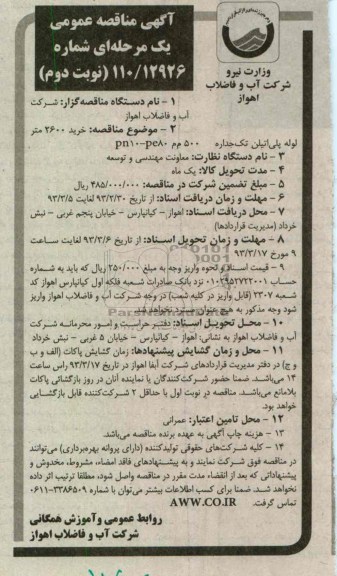 آگهی مناقصه عمومی
یک مرحله‌ای شماره
۱۱۰/۱۲۹۲۶ (نوبت دوم)
وزارت نیرو
شرکت آب و فاضلاب
اهواز
۱ - نام دستگاه مناقصه‌گزار: شرکت
آب و فاضلاب اهواز
۲ - موضوع مناقصه: خرید ۲۶۰۰ متر
لوله پلی‌اتیلن تک‌جداره ۵۰۰ م‌م pn۱۰-pe۸۰
۳ - نام دستگاه نظارت: معاونت مهندسی و توسعه
۴ - مدت تحویل کالا: یک ماه
۵ - مبلغ تضمین شرکت در مناقصه: ۴۸۵/۰۰۰/۰۰۰ ریال
۶ - مهلت و زمان دریافت اسناد: از تاریخ ۹۳/۲/۳۰ لغایت ۹۳/۳/۵
۷ - محل دریافت اسناد: اهواز - کیانپارس - خیابان پنجم غربی - نبش
خرداد (مدیریت قراردادها)
۸ - مهلت و زمان تحویل اسناد: از تاریخ ۹۳/۳/۶ لغایت ساعت
۹ مورخ ۹۳/۳/۱۷
۹ - قیمت اسناد و نحوه واریز وجه به مبلغ ۲۵۰/۰۰۰ ریال که باید به شماره
حساب ۰۱۰۲۹۵۲۷۲۲۰۰۱ نزد بانک صادرات شعبه فلکه اول کیانپارس اهواز کد
شعبه ۲۳۰۷ (قابل واریز در کلیه شعب) در وجه شرکت آب و فاضلاب اهواز واریز
شود وجه مذکور به هیچ عنوان مسترد نخواهد شد.
۱۰ - محل تحویل اسناد: دفتر حراست و امور محرمانه شرکت
آب و فاضلاب اهواز به نشانی: اهواز - کیانپارس - خیابان ۵ غربی - نبش خرداد
۱۱ - محل و زمان گشایش پیشنهادها: زمان گشایش پاکات (الف و ب
و ج) در دفتر مدیریت قراردادهای شرکت آبفا اهواز در تاریخ ۹۳/۳/۱۷ راس ساعت
۱۴ می‌باشد. ضمنا حضور شرکت‌کنندگان یا نماینده آنان در روز بازگشائی پاکات
بلامانع می‌باشد. مناقصه در نوبت اول با حداقل ۲ شرکت‌کننده قابل بازگشایی
خواهد بود.
۱۲ - محل تامین اعتبار: عمرانی
۱۳ - هزینه چاپ آگهی به عهده برنده مناقصه می‌باشد.
۱۴ - کلیه شرکت‌های حقوقی تولیدکننده (دارای پروانه بهره‌برداری) می‌توانند
در مناقصه فوق شرکت نمایند و به پیشنهادهای فاقد امضاء، مشروط، مخدوش و
پیشنهاداتی که بعد از انقضاء مدت مقرر در مناقصه واصل شود، مطلقا ترتیب اثر داده
نخواهد شد. ضمنا برای کسب اطلاعات بیشتر می‌توان با شماره ۳۳۸۶۵۰۹-۰۶۱۱
تماس گرفت. AWW.CO.IR
روابط عمومی و آموزش همگانی
شرکت آب و فاضلاب اهواز